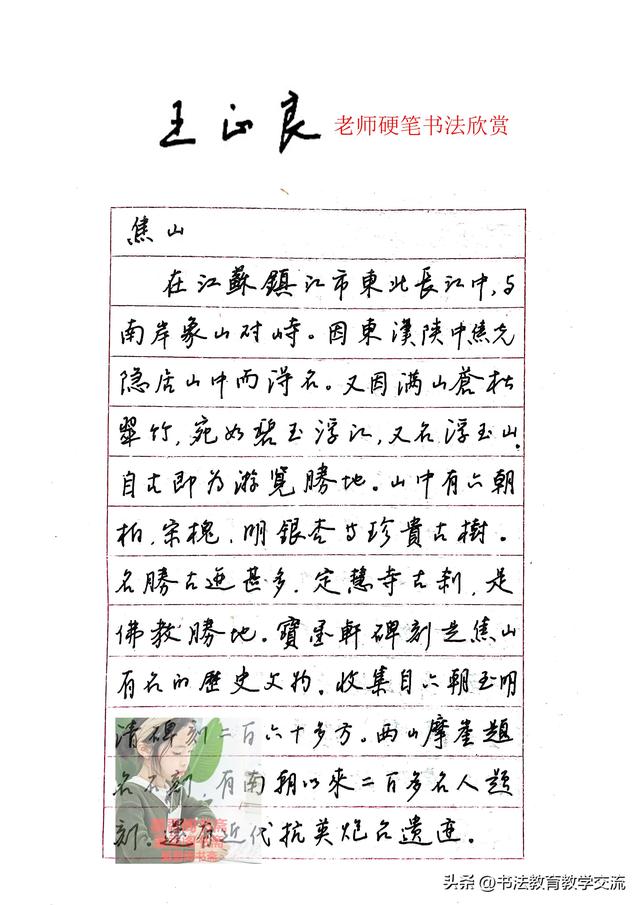 王正良 老师硬笔书法欣赏
焦山
在江蘇鎮江市東北長江中,与
南岸象山对峙。因東漢陝中焦光
隐居山中而得名。又因满山蒼松
翠竹,宛如碧玉浮江,又名浮玉山。
自古即为游覽勝地。山中有六朝
柏,宋槐,明銀杏等珍貴古樹。
名勝古迹甚多,定慧寺古刹,是
佛教勝地。寶墨軒碑刻是焦山
有名的歷史文物,收集自六朝至明
清碑刻二百六十多方。西山摩崖題
名石刻,有南朝以來二百多名人題
刻。還有近代抗英炮台遺迹。
头条 @书法教育教学交流